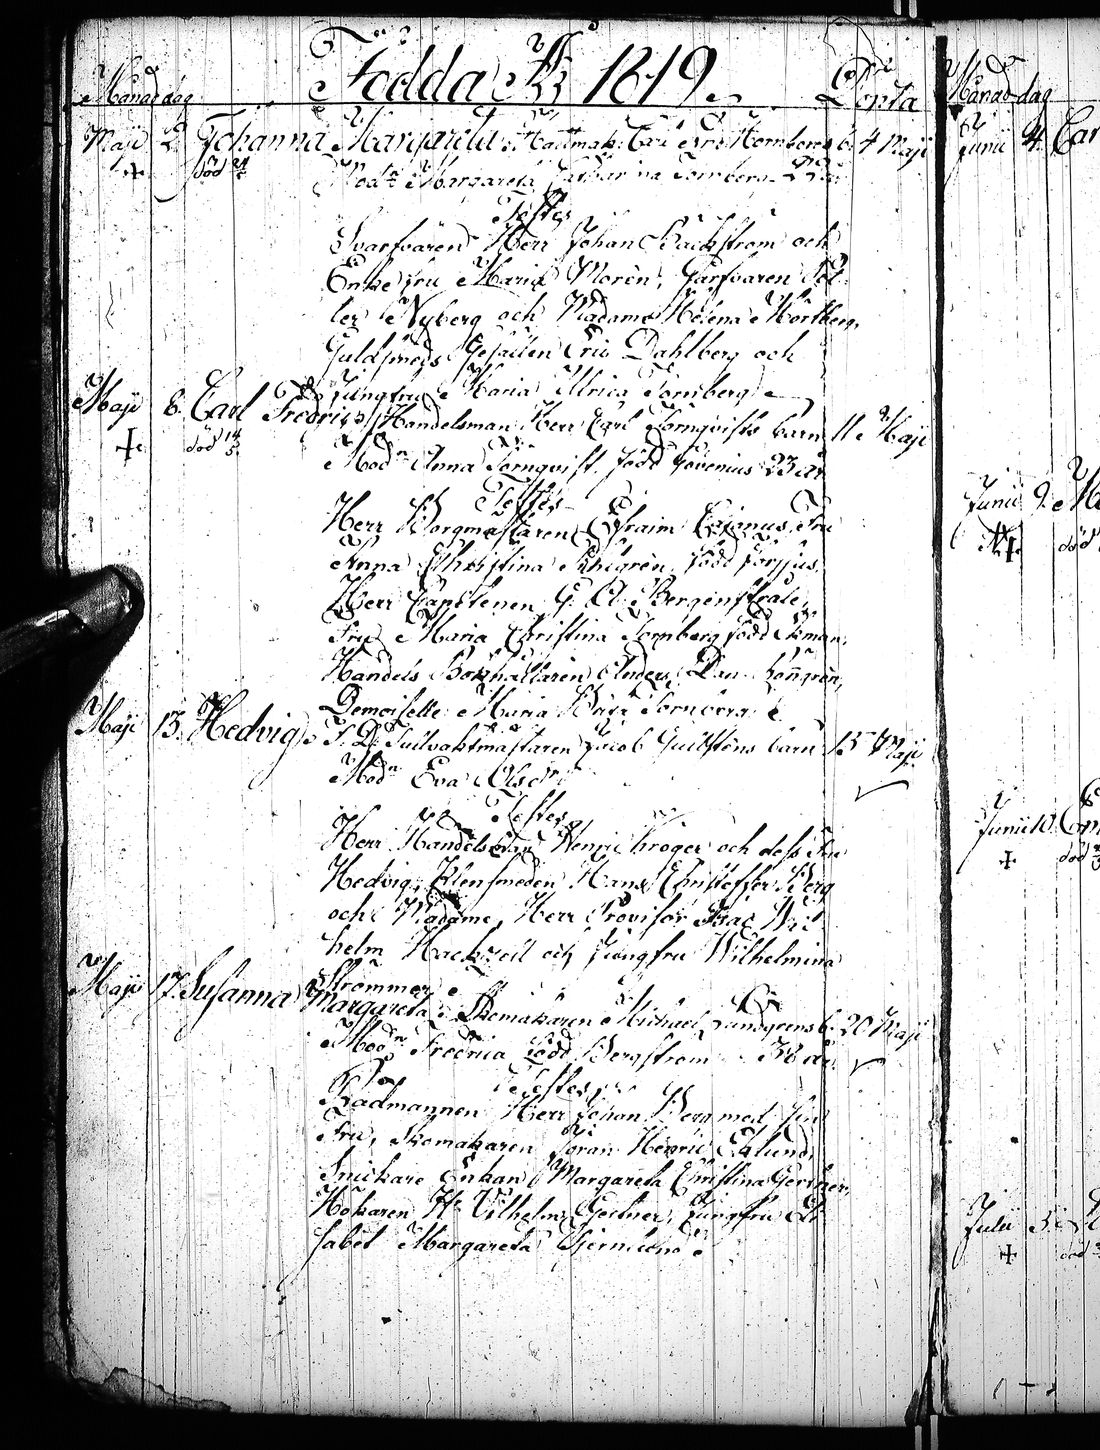 Födda År 1819.
Månad dag Döpta
Maji 2. Johanna Margareta, Hattmak: Carl Er: Hornbergs b. 4 Maji
död Mod:n Margareta Cathar:na Tornberg
Testes
Svarfvaren Herr Johan Backstrom och
Enke fru Maria Morén, Garfvaren Pet-
ter Nyberg och Madame Helena Mortberg,
Guldsmeds Gesällen Eric Dahlberg och
Jungfru Maria Ulrica Tornberg
Maji 8. Carl Fredric, Handelsman Herr Carl Törnqvists barn 11 Maji
död 14/5 Mod:n Anna Törnqvist, född Govenius 23 år
Testes
Herr Borgmästaren Efraim Fru
Anna Christina född
Herr Captenen G. A. Bergenstråle,
Fru Maria Christina Tornberg född Ekman,
Handels Bokhållaren Anders Dan:
Demoiselle Maria Tornberg
Maji 13. Hedvig, Tullvaktmästaren Jacob barn 15 Maji
Mod:n Eva Olsd:r
Testes
Herr Handelsman Henric Kröger och dess Fru
Hedvig, Klensmeden Hans Christoffer Berg
och Madame, Herr Provisor Isac Wil-
helm Hackzell och Jungfru Wilhelmina
Strömmer
Maji 17. Susanna Margareta, Skomakaren Michael Lundgrens b. 20 Maji
Mod:n Fredrica född Bergstrom 38 år
Testes
Rådmannen Herr Johan Berg med sin
Fru, Skomakaren Joran Henric Eklund,
Snickare Enkan Margareta Christina Gertner,
Hökaren H:r Vilhelm Gertner, Jungfru Eli-
sabet Margareta
Månad dag
Junii 4. Car
Junii 9.
död
Junii 10.
död
Julii 5.
död